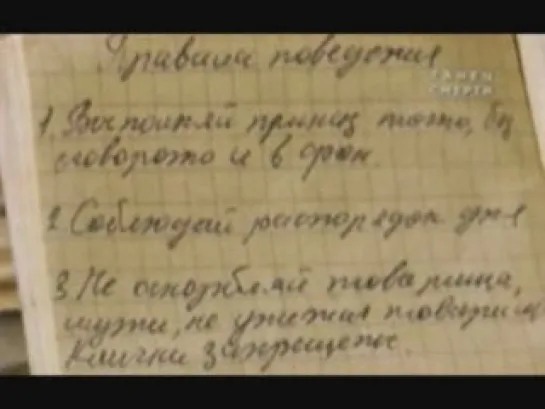 Правила поведения
ТАНЕЦ
СМЕРТИ
1. Выполняй приказ точно, бес
словно и в срок.
2 Соблюдай распорядок дня
3. Не оскорбляй товарища,
не унижай товарища
Клички запрещены.